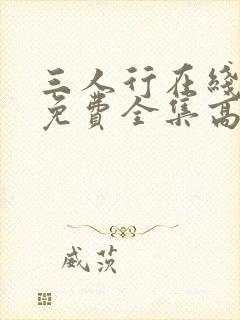 三人行在綫
免費全集高
威茨